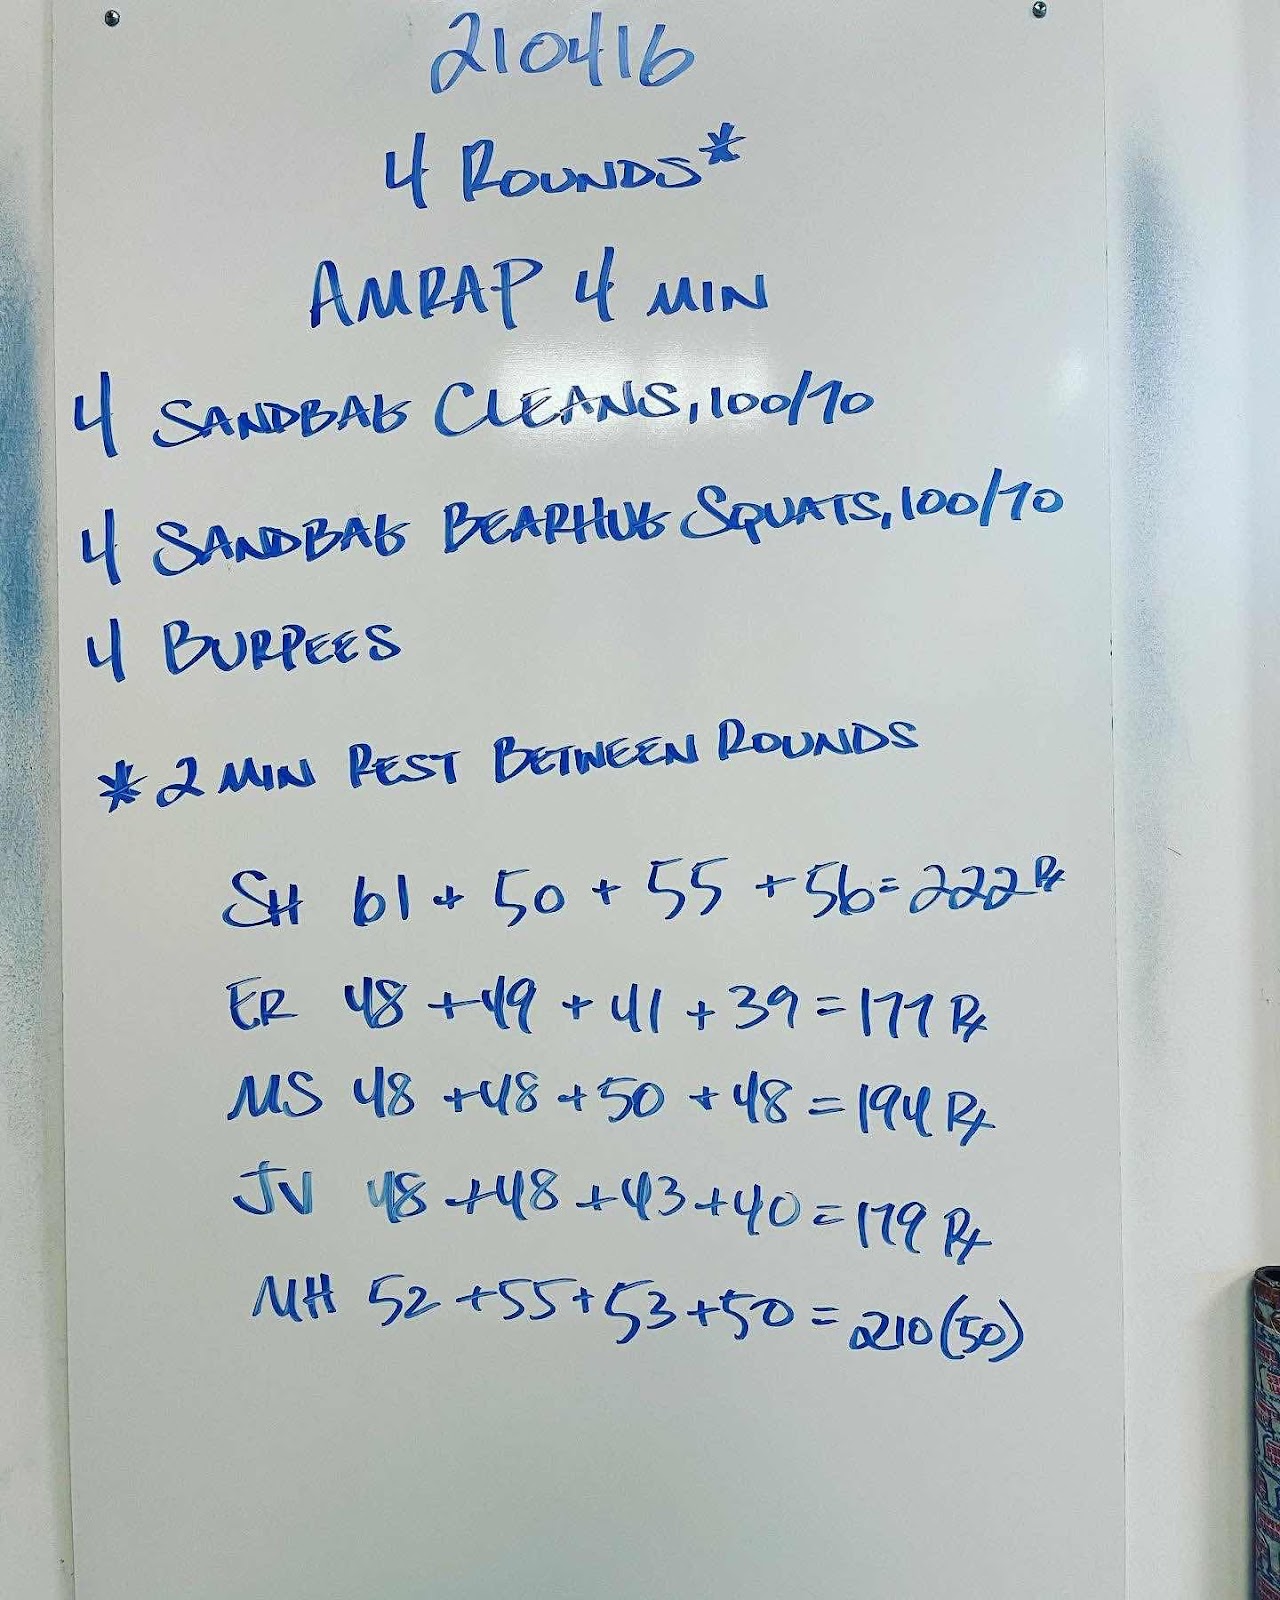 210416
4 ROUNDS*
AMRAP 4 MIN
4 SANDBAG CLEANS, 100/70
4 SANDBAG BEARHUG SQUATS, 100/70
4 BURPEES
*2 MIN REST BETWEEN ROUNDS
SH 61 + 50 + 55 + 56 = 222 Rx
ER 48 + 49 + 41 + 39 = 177 Rx
MS 48 + 48 + 50 + 48 = 194 Rx
JV 48 + 48 + 43 + 40 = 179 Rx
MH 52 + 55 + 53 + 50 = 210 (50)